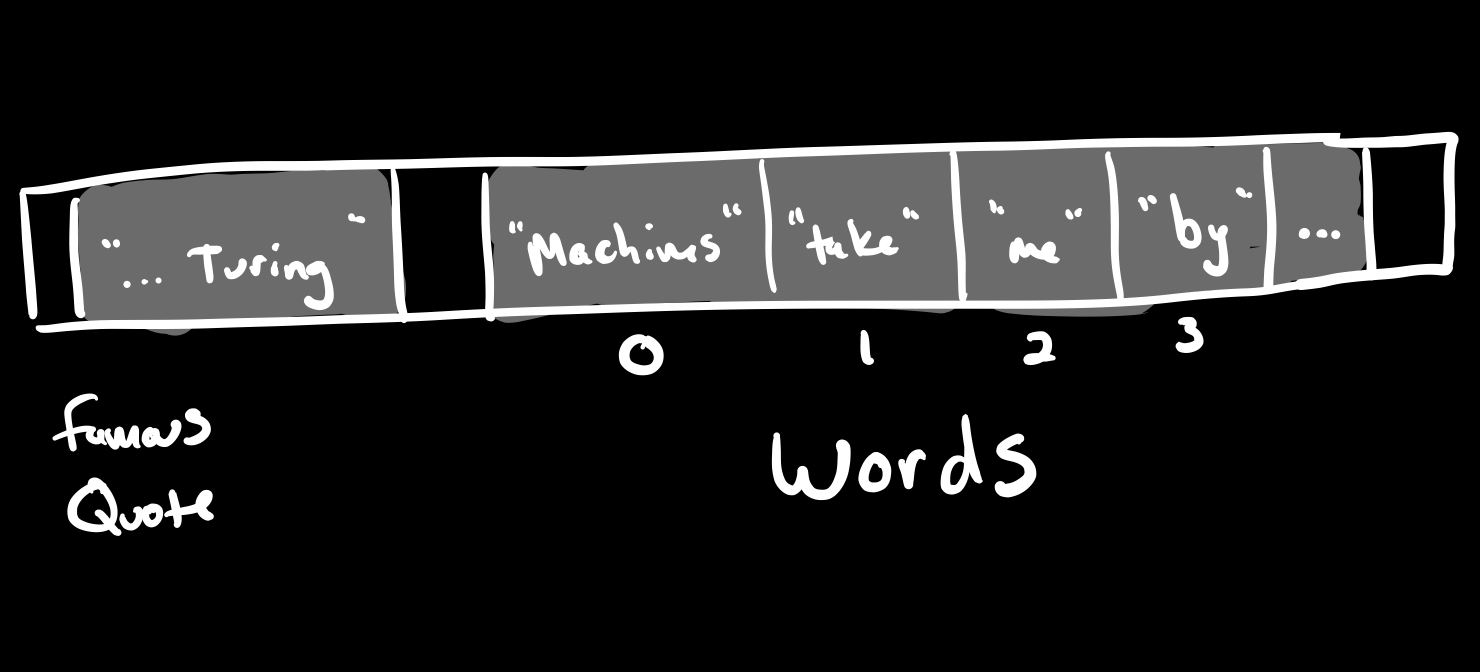 "... Turing" "Machines" "take" "me" "by" ...
0 1 2 3
famous
Quote
Words